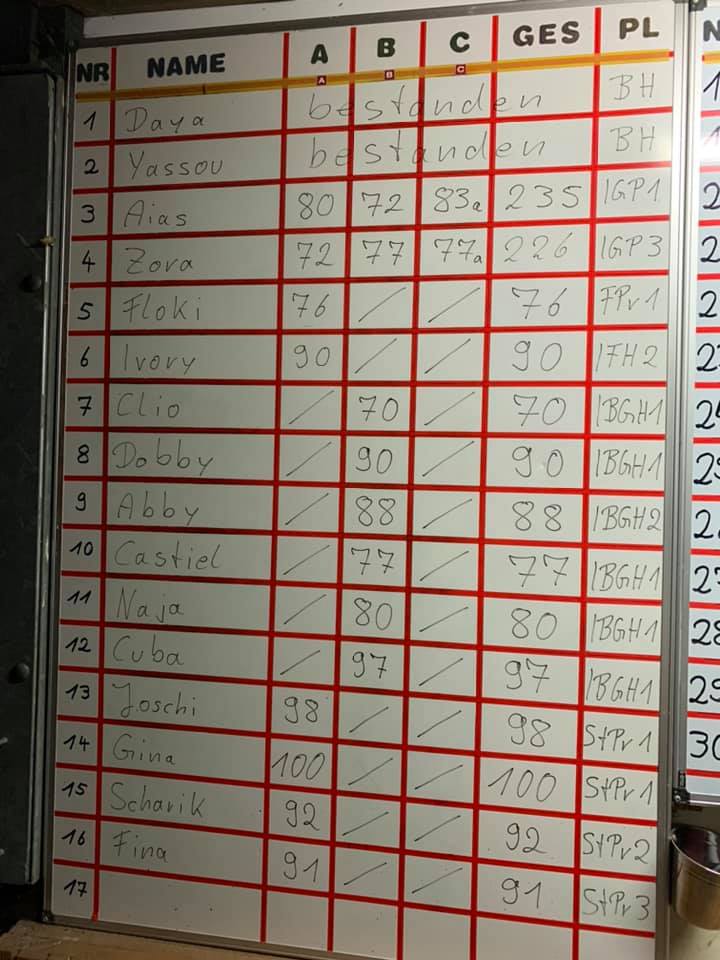 NR NAME A B C GES PL
A B C
1 Daya bestanden BH
2 Yassou bestanden BH
3 Aias 80 72 83a 235 IGP1
4 Zora 72 77 77a 226 IGP3
5 Floki 76 / / 76 FPr1
6 Ivory 90 / / 90 IFH2
7 Clio / 70 / 70 IBGH1
8 Dobby / 90 / 90 IBGH1
9 Abby / 88 / 88 IBGH2
10 Castiel / 77 / 77 IBGH1
11 Naja / 80 / 80 IBGH1
12 Cuba / 97 / 97 IBGH1
13 Joschi 98 / / 98 StPr1
14 Gina 100 / / 100 StPr1
15 Scharik 92 / / 92 StPr2
16 Fina 91 / / 91 StPr3
17
30